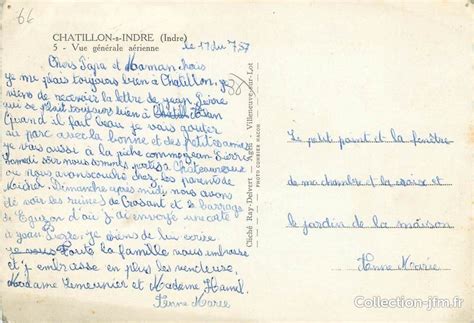 66
CHATILLON-s-INDRE (Indre)
5 - Vue générale aérienne
le 17 du 7 57
Chers Papa et Maman
je me plais toujours bien à Chatillon, je
viens de recevoir la lettre de jean Pierre
qui se plait toujours bien à
Quand il fait beau je vais gouter
au parc avec la bonne et des petites amies
je vais aussi à la pêche comme jean Pierre
Samedi soir nous sommes partis à Chateauroux
ou nous avons couché chez les parents de
Dimanche après midi nous avons
été voir les ruines de Crosant et le barrage
de Eguzon d'où j'ai envoyé une carte
à jean Pierre je viens de lui écrire.
je vous Toute la famille vous embrasse
et j'embrasse en plus les
Madame Lemeunier et Madame Hamel.
Anne Marie
Cliché Ray-Delvert - Agen - Villeneuve-sur-Lot
PHOTO COMBIER MACON
Le petit point et la fenêtre
de ma chambre et la croix et
le jardin de la maison
Anne Marie
Collection-jfm.fr